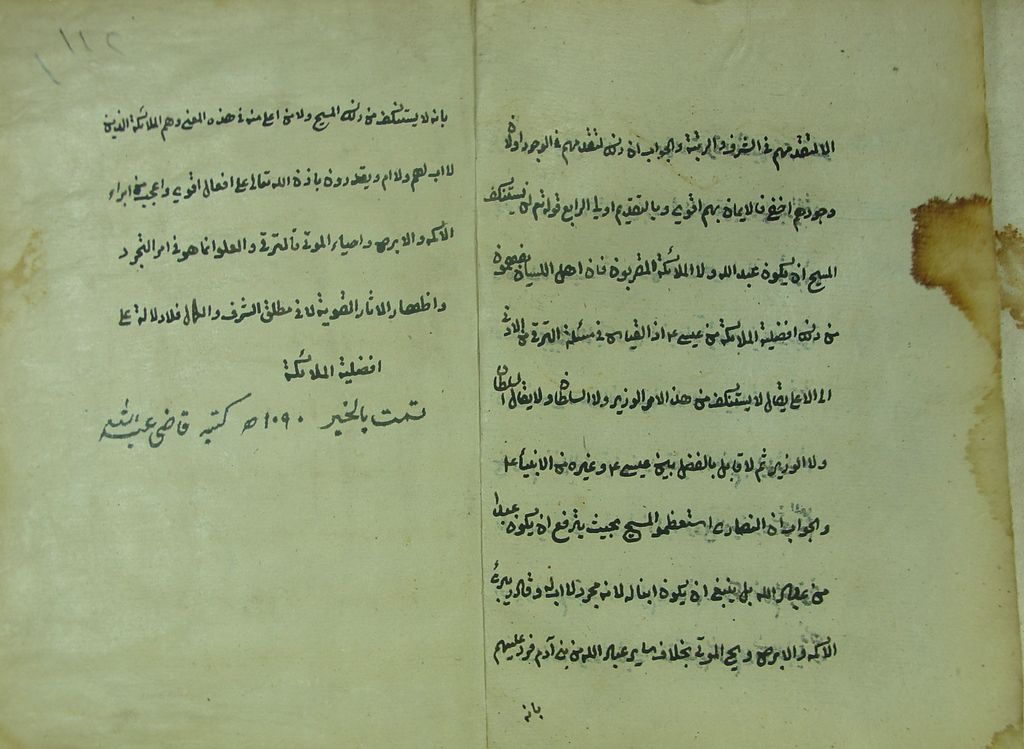 الا لتقدمهم فى الشرف والرتبة والجواب ان ذلك لتقدمهم فى الوجود اولان
وجودهم اخفى فالايمان بهم اقوى وبالتقديم اولى الرابع قوله تع لن يستنكف
المسيح ان يكون عبدالله ولا الملائكة المقربون فان اهل اللسان يفهمون
من ذلك افضلية الملائكة من عيسى ع م اذ القياس فى مثله الترقى من الادنى
الى الاعلى يقال لا يستنكف من هذا الامر الوزير ولا السلطان ولا يقال السلطان
ولا الوزير ثم لا قايل بالفضل بين عيسى ع م وغيره من الانبياء ع م
والجواب ان النصارى استعظموا المسيح بحيث يترفع ان يكون عبدا
من عباد الله بل ينبغى ان يكون ابنا له لانه مجرد لا اب له وقال يبرئ
الاكمه والابرص ويحى الموتى بخلاف ساير عباد الله من بنى آدم فرد عليهم
بانه
١١٢
بانه لا يستنكف من ذلك المسيح ولا من اعلى منه فى هذه المعنى وهم الملائكة الذين
لا اب لهم ولا ام ويقدرون باذن الله تعالى على افعال اقوى واعجب من ابراء
الاكمه والابرص واحياء الموتى فالترقى والعلو انما هو فى امر التجرد
واظهار الاثار القوية لا فى مطلق الشرف والكمال فلا دلالة على
افضلية الملائكة
تمت بالخير ١٠٩٠ ه كتبه قاضى عبد الله